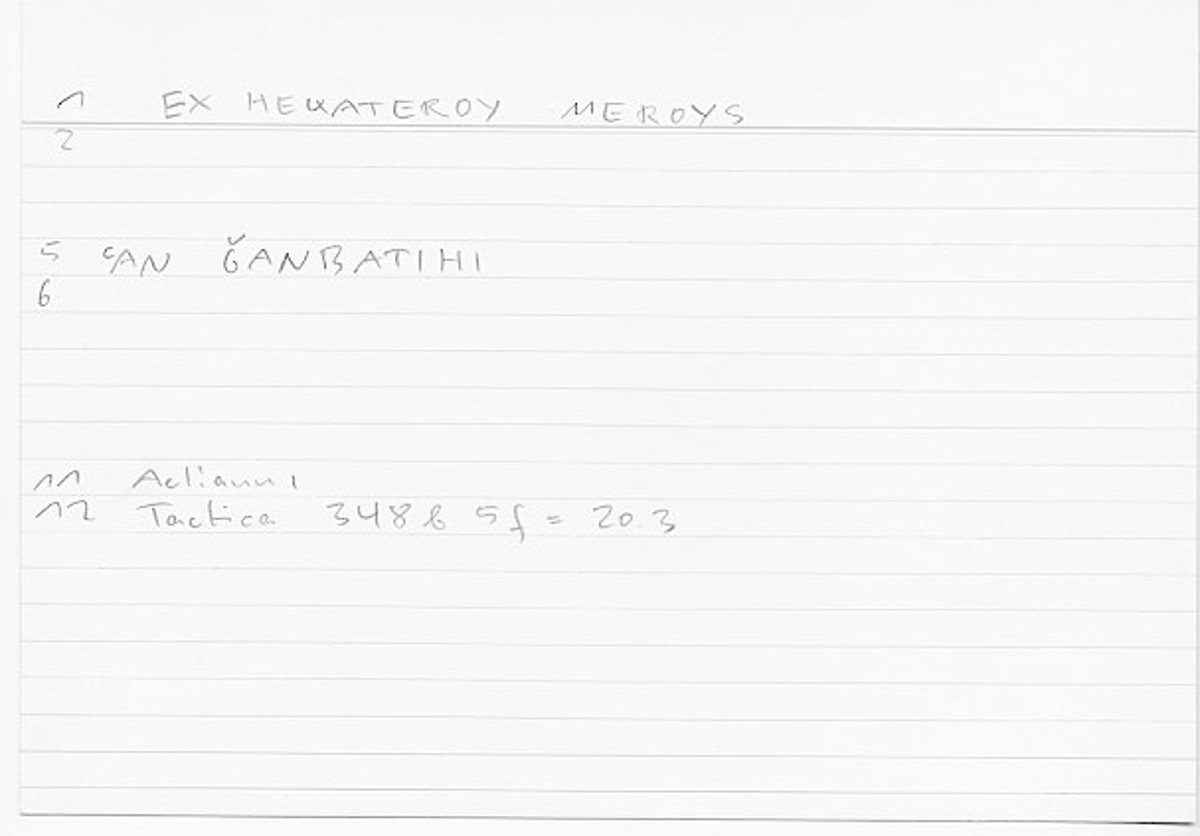 1 EX HEKATEROY MEROYS
2
5 ʿAN ǦANBATIHI
6
11 Aeliani
12 Tactica 348 b 5 f = 20.3